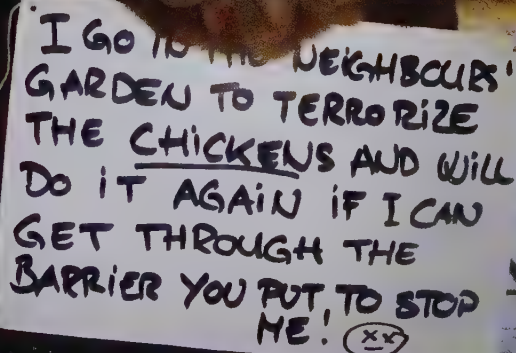 I GO NEIGHBOURS'
GARDEN TO TERRORIZE
THE CHICKENS AND WILL
DO IT AGAIN IF I CAN
GET THROUGH THE
BARRIER YOU PUT TO STOP
ME! xx